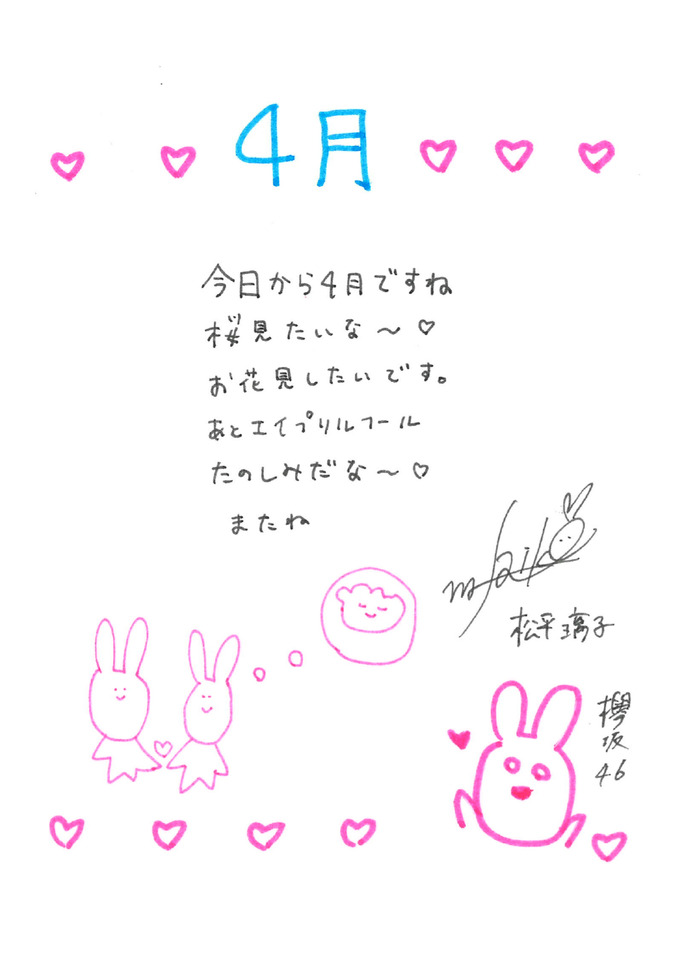 4月
今日から4月ですね
桜見たいな〜♡
お花見したいです。
あとエイプリルフール
たのしみだな〜♡
またね
松平璃子
欅坂46